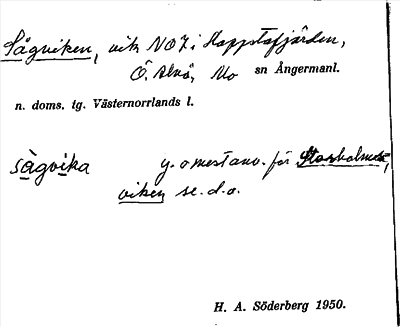 Sågviken, vik NO Z i Happstafjärden,
Ö. Alnö, Mo sn Ångermanl.
n. doms. tg. Västernorrlands l.
sàgvika y. o mest anv. för Storholms-
viken se. d. o.
H. A. Söderberg 1950.